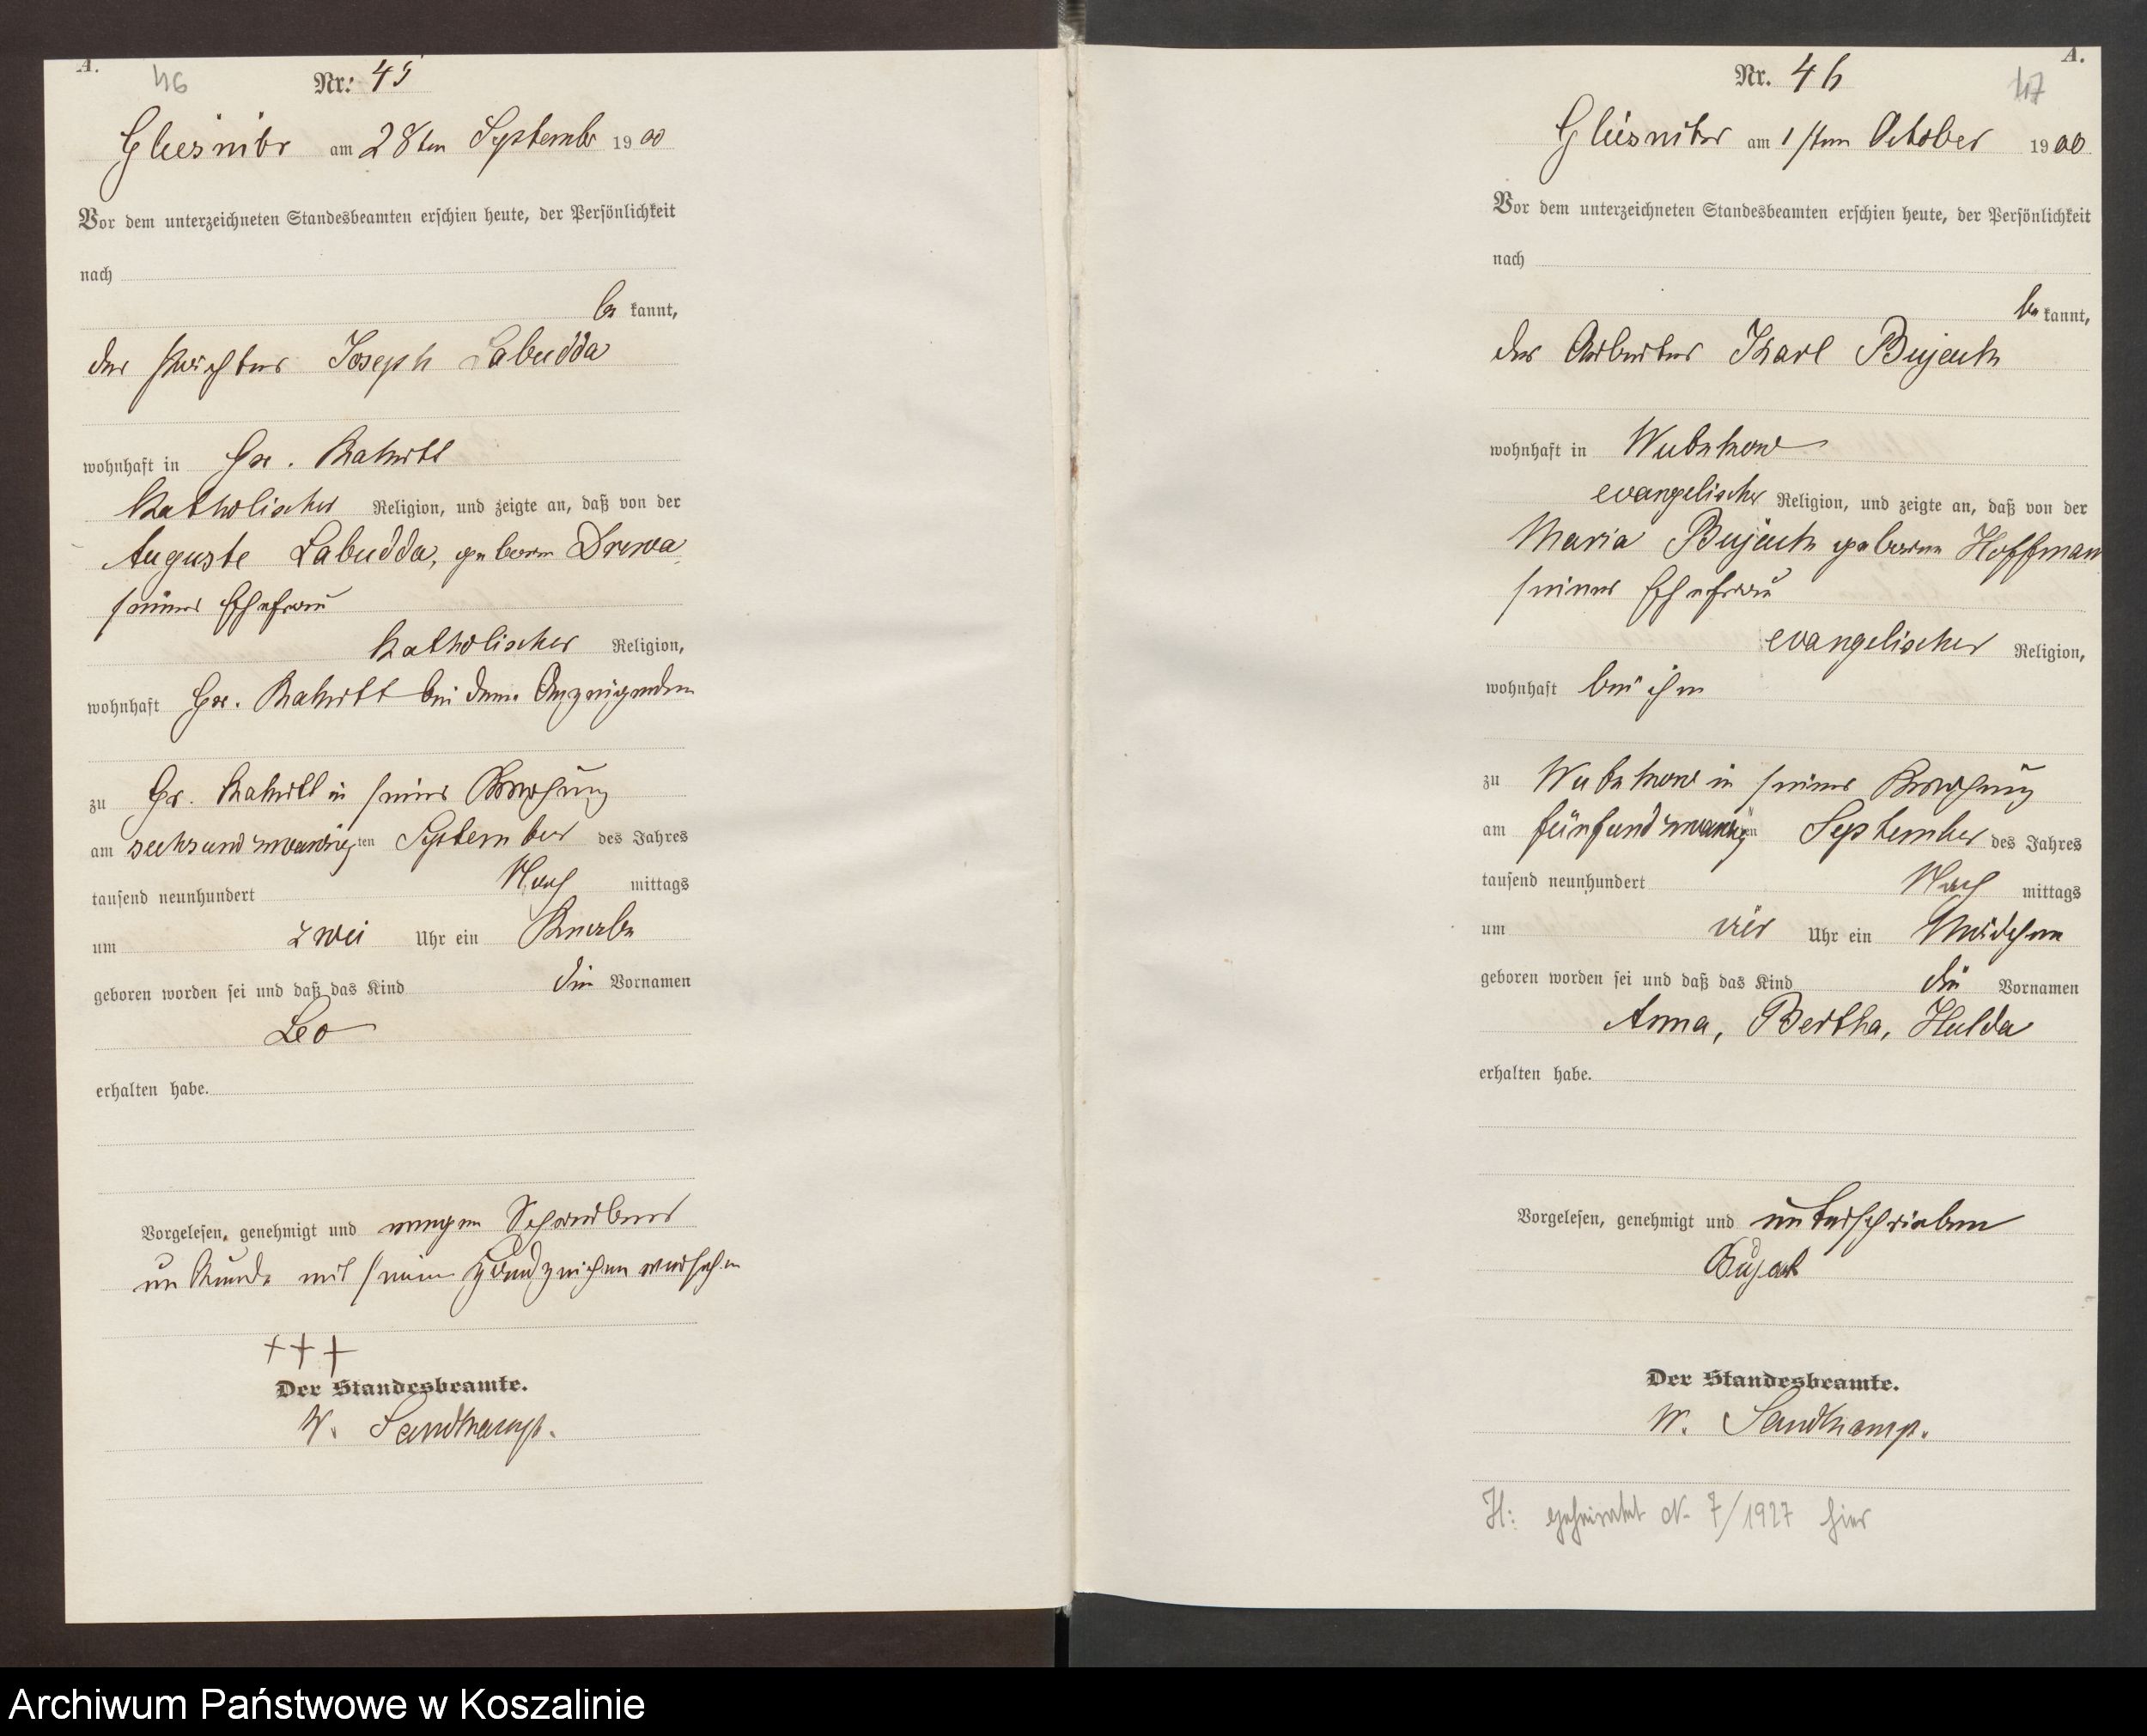 A.
46
Nr. 45
Gluesnitz am 28ten September 1900
Vor dem unterzeichneten Standesbeamten erschien heute, der Persönlichkeit
nach
be kannt,
der Pächter Joseph Labudda
wohnhaft in Gr. Rakitt
katholischer Religion, und zeigte an, daß von der
Auguste Labudda, geboren Drewa
seiner Ehefrau
katholischer Religion,
wohnhaft Gr. Rakitt bei dem Anzeigenden
zu Gr. Rakitt in seiner Wohnung
am sechsundzwanzigten September des Jahres
tausend neunhundert Nach mittags
um zwei Uhr ein Knabe
geboren worden sei und daß das Kind die Vornamen
Leo
erhalten habe.
Vorgelesen, genehmigt und wegen Schreibens
unkunde mit seinem Handzeichen versehen
+++
Der Standesbeamte.
W. Sandkamp.
A.
47
Nr. 46
Gluesnitz am 1sten October 1900
Vor dem unterzeichneten Standesbeamten erschien heute, der Persönlichkeit
nach
be kannt,
der Arbeiter Karl Bujack
wohnhaft in Wutzkow
evangelischer Religion, und zeigte an, daß von der
Maria Bujack geborene Hoffman
seiner Ehefrau
evangelischer Religion,
wohnhaft bei ihm
zu Wutzkow in seiner Wohnung
am fünfundzwanzigten September des Jahres
tausend neunhundert Nach mittags
um vier Uhr ein Mädchen
geboren worden sei und daß das Kind die Vornamen
Anna, Bertha, Hulda
erhalten habe.
Vorgelesen, genehmigt und unterschrieben
Bujack
Der Standesbeamte.
W. Sandkamp.
H: geheiratet N. 7/1927 hier
Archiwum Państwowe w Koszalinie